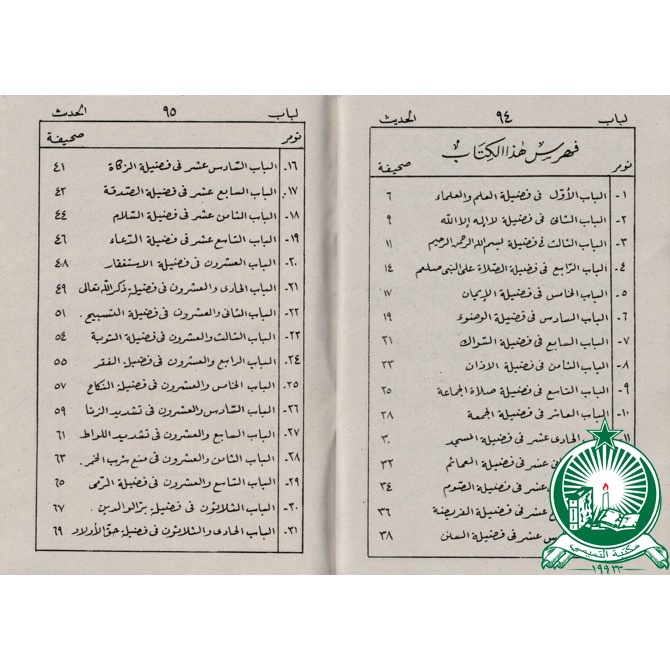 لباب ٩٤ الحديث
فهرس هذا الكتاب
نومر صحيفة
١- الباب الأول فى فضيلة العلم والعلماء ٦
٢- الباب الثانى فى فضيلة لا اله الا الله ٩
٣- الباب الثالث فى فضيلة بسم الله الرحمن الرحيم ١١
٤- الباب الرابع فى فضيلة الصلاة على النبى صلعم ١٤
٥- الباب الخامس فى فضيلة الإيمان ١٧
٦- الباب السادس فى فضيلة الوضوء ١٩
٧- الباب السابع فى فضيلة السواك ٢١
٨- الباب الثامن فى فضيلة الاذان ٢٣
٩- الباب التاسع فى فضيلة صلاة الجماعة ٢٥
١٠- الباب العاشر فى فضيلة الجمعة ٢٨
الباب الحادى عشر فى فضيلة المسجد ٣٠
عشر فى فضيلة العمائم ٣٢
عشر فى فضيلة الصوم ٣٤
عشر فى فضيلة الفريضة ٣٦
عشر فى فضيلة السنن ٣٨
لباب ٩٥ الحديث
نومر صحيفة
١٦- الباب السادس عشر فى فضيلة الزكاة ٤١
١٧- الباب السابع عشر فى فضيلة الصدقة ٤٢
١٨- الباب الثامن عشر فى فضيلة السلام ٤٤
١٩- الباب التاسع عشر فى فضيلة الدعاء ٤٦
٢٠- الباب العشرون فى فضيلة الاستغفار ٤٨
٢١- الباب الحادى والعشرون فى فضيلة ذكر الله تعالى ٤٩
٢٢- الباب الثانى والعشرون فى فضيلة التسبيح. ٥١
٢٣- الباب الثالث والعشرون فى فضيلة التوبة ٥٤
٢٤- الباب الرابع والعشرون فى فضيلة الفقر ٥٥
٢٥- الباب الخامس والعشرون فى فضيلة النكاح ٥٧
٢٦- الباب السادس والعشرون فى تشديد الزنا ٥٩
٢٧- الباب السابع والعشرون فى تشديد اللواط ٦١
٢٨- الباب الثامن والعشرون فى منع شرب الخمر. ٦٣
٢٩- الباب التاسع والعشرون فى فضيلة الرمى ٦٥
٣٠- الباب الثلاثون فى فضيلة بر الوالدين. ٦٧
٣١- الباب الحادى والثلاثون فى فضيلة حق الأولاد ٦٩
١٩٩٢٣